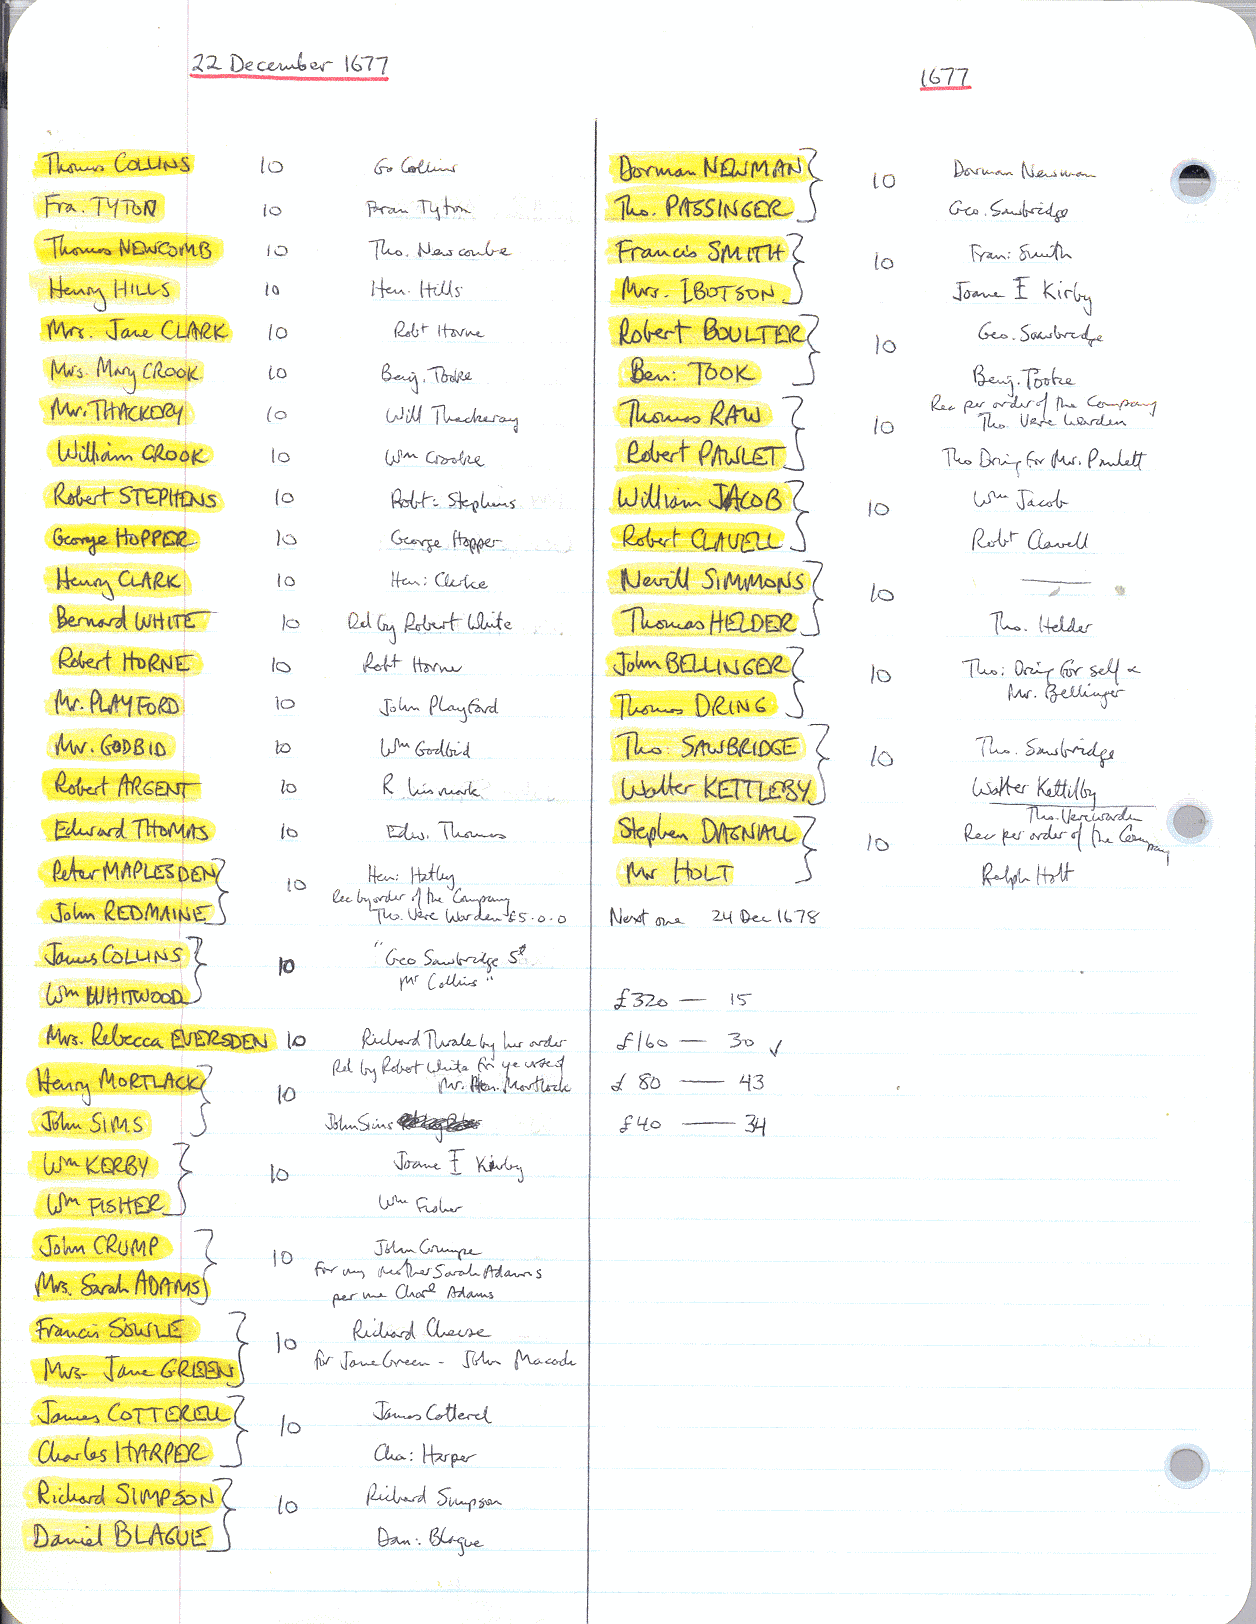 22 December 1677
Thomas COLLINS 10 Go Collins
Fra. TYTON 10 Fran Tyton
Thomas NEWCOMB 10 Tho. Newcombe
Henry HILLS 10 Hen. Hills
Mrs. Jane CLARK 10 Robt Horne
Mrs. Mary CROOK 10 Benj. Tooke
Mr. THACKERY 10 Will Thackeray
William CROOK 10 Wm Crooke
Robert STEPHENS 10 Robt: Stephens
George HOPPER 10 George Hopper
Henry CLARK 10 Hen: Clarke
Bernard WHITE 10 Rd by Robert White
Robert HORNE 10 Robt Horne
Mr. PLAYFORD 10 John Playford
Mr. GODBID 10 Wm Godbid
Robert ARGENT 10 R his mark
Edward THOMAS 10 Edw. Thomas
Peter MAPLESDEN 10 Hen: Hatley
John REDMAINE Rec by order of the Company
Tho. Vere Warden £5.0.0
James COLLINS 10 "Geo Sawbridge
Wm WHITWOOD Mr Collins"
Mrs. Rebecca EVERSDEN 10 Richard Thrale by her order
Henry MORTLACK 10 Rd by Robert White for ye use of
Mr. Hen. Mortlock
John SIMS John Sims
Wm KERBY 10 Joane I Kirby
Wm FISHER Wm Fisher
John CRUMP 10 John Crumpe
Mrs. Sarah ADAMS for my mother Sarah Adams
per me Charl Adams
Francis SOWLE 10 Richard Cheese
Mrs. Jane GREEN for Jane Green - John Macock
James COTTERELL 10 James Cotterel
Charles HARPER Cha: Harper
Richard SIMPSON 10 Richard Simpson
Daniel BLAGUE Dan: Blague
1677
Dorman NEWMAN 10 Dorman Newman
Tho. PASSINGER Geo. Sawbridge
Francis SMITH 10 Fran: Smith
Mrs. IBOTSON Joane I Kirby
Robert BOULTER 10 Geo. Sawbridge
Ben: TOOK Benj. Tooke
Thomas RAW 10 Rec per order of the Company
Tho. Vere Warden
Robert PAWLET Tho Dring for Mr. Pawlett
William JACOB 10 Wm Jacob
Robert CLAVELL Robt Clavell
Nevill SIMMONS 10 ——
Thomas HELDER Tho. Helder
John BELLINGER 10 Tho: Dring for self &
Thomas DRING Mr. Bellinger
Tho: SAWBRIDGE 10 Tho. Sawbridge
Walter KETTLEBY Walter Kettilby
Stephen DAGNIALL 10 Tho. Vere warden
Rec per order of the Company
Mr HOLT Ralph Holt
Next one 24 Dec 1678
£320 — 15
£160 — 30 ✓
£80 — 43
£40 — 34